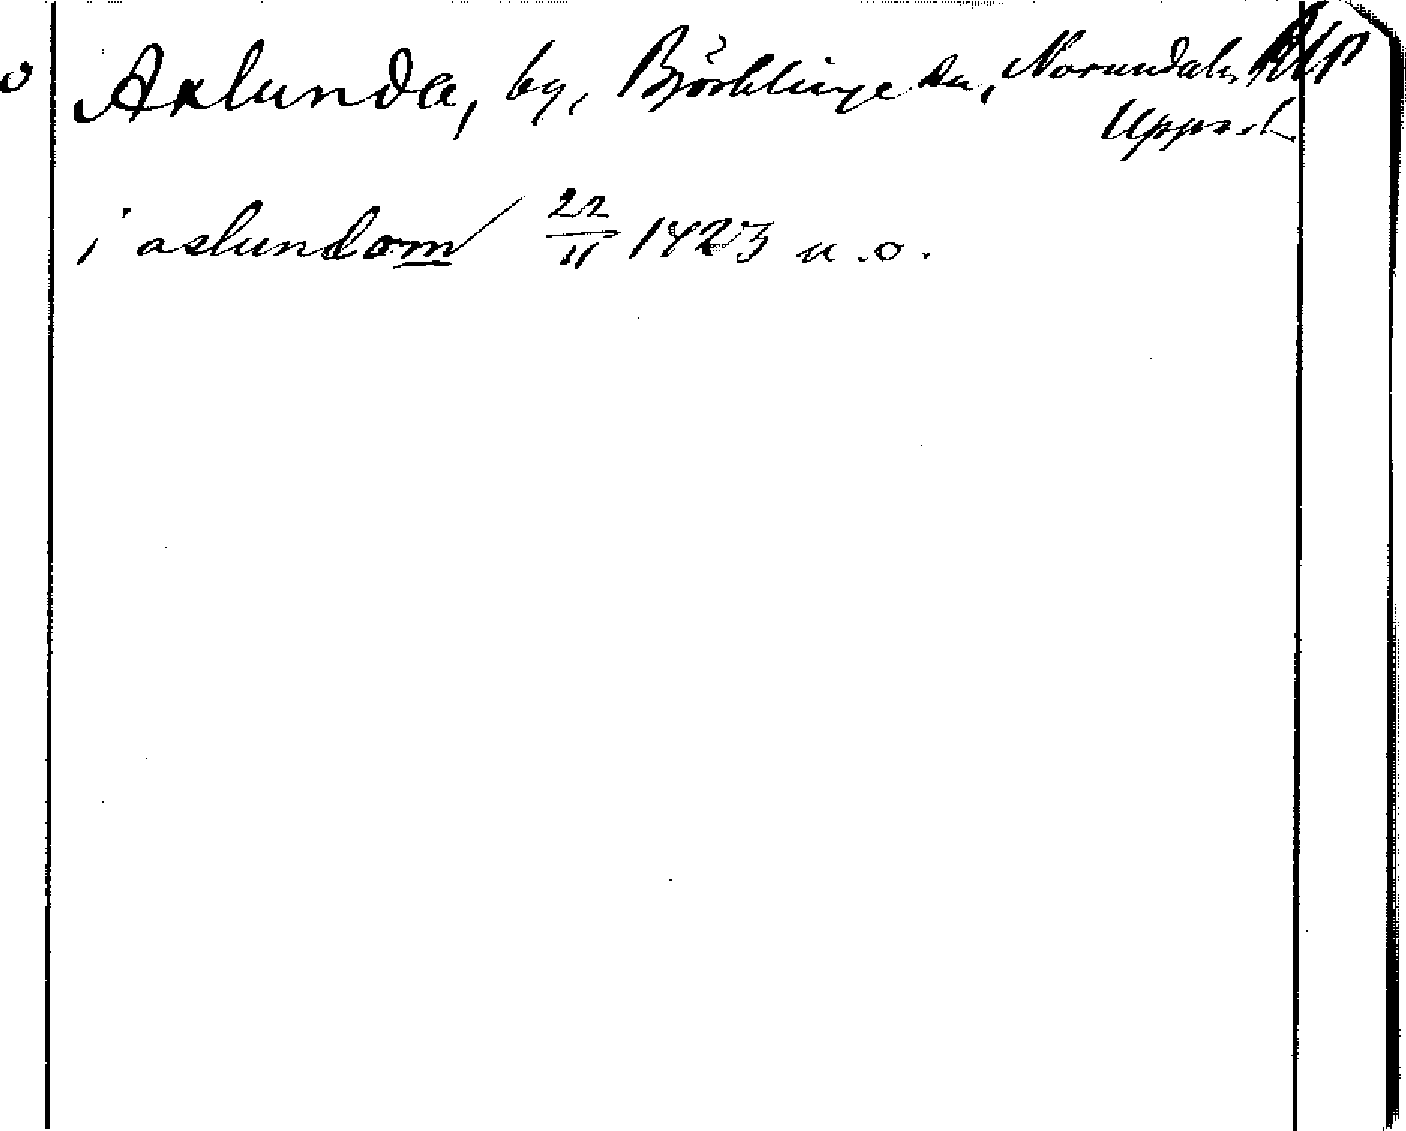 Axlunda, by, Björklinge sn, Norunda hd,
Uppsal
i aslundom 22/11 1423 u.o.